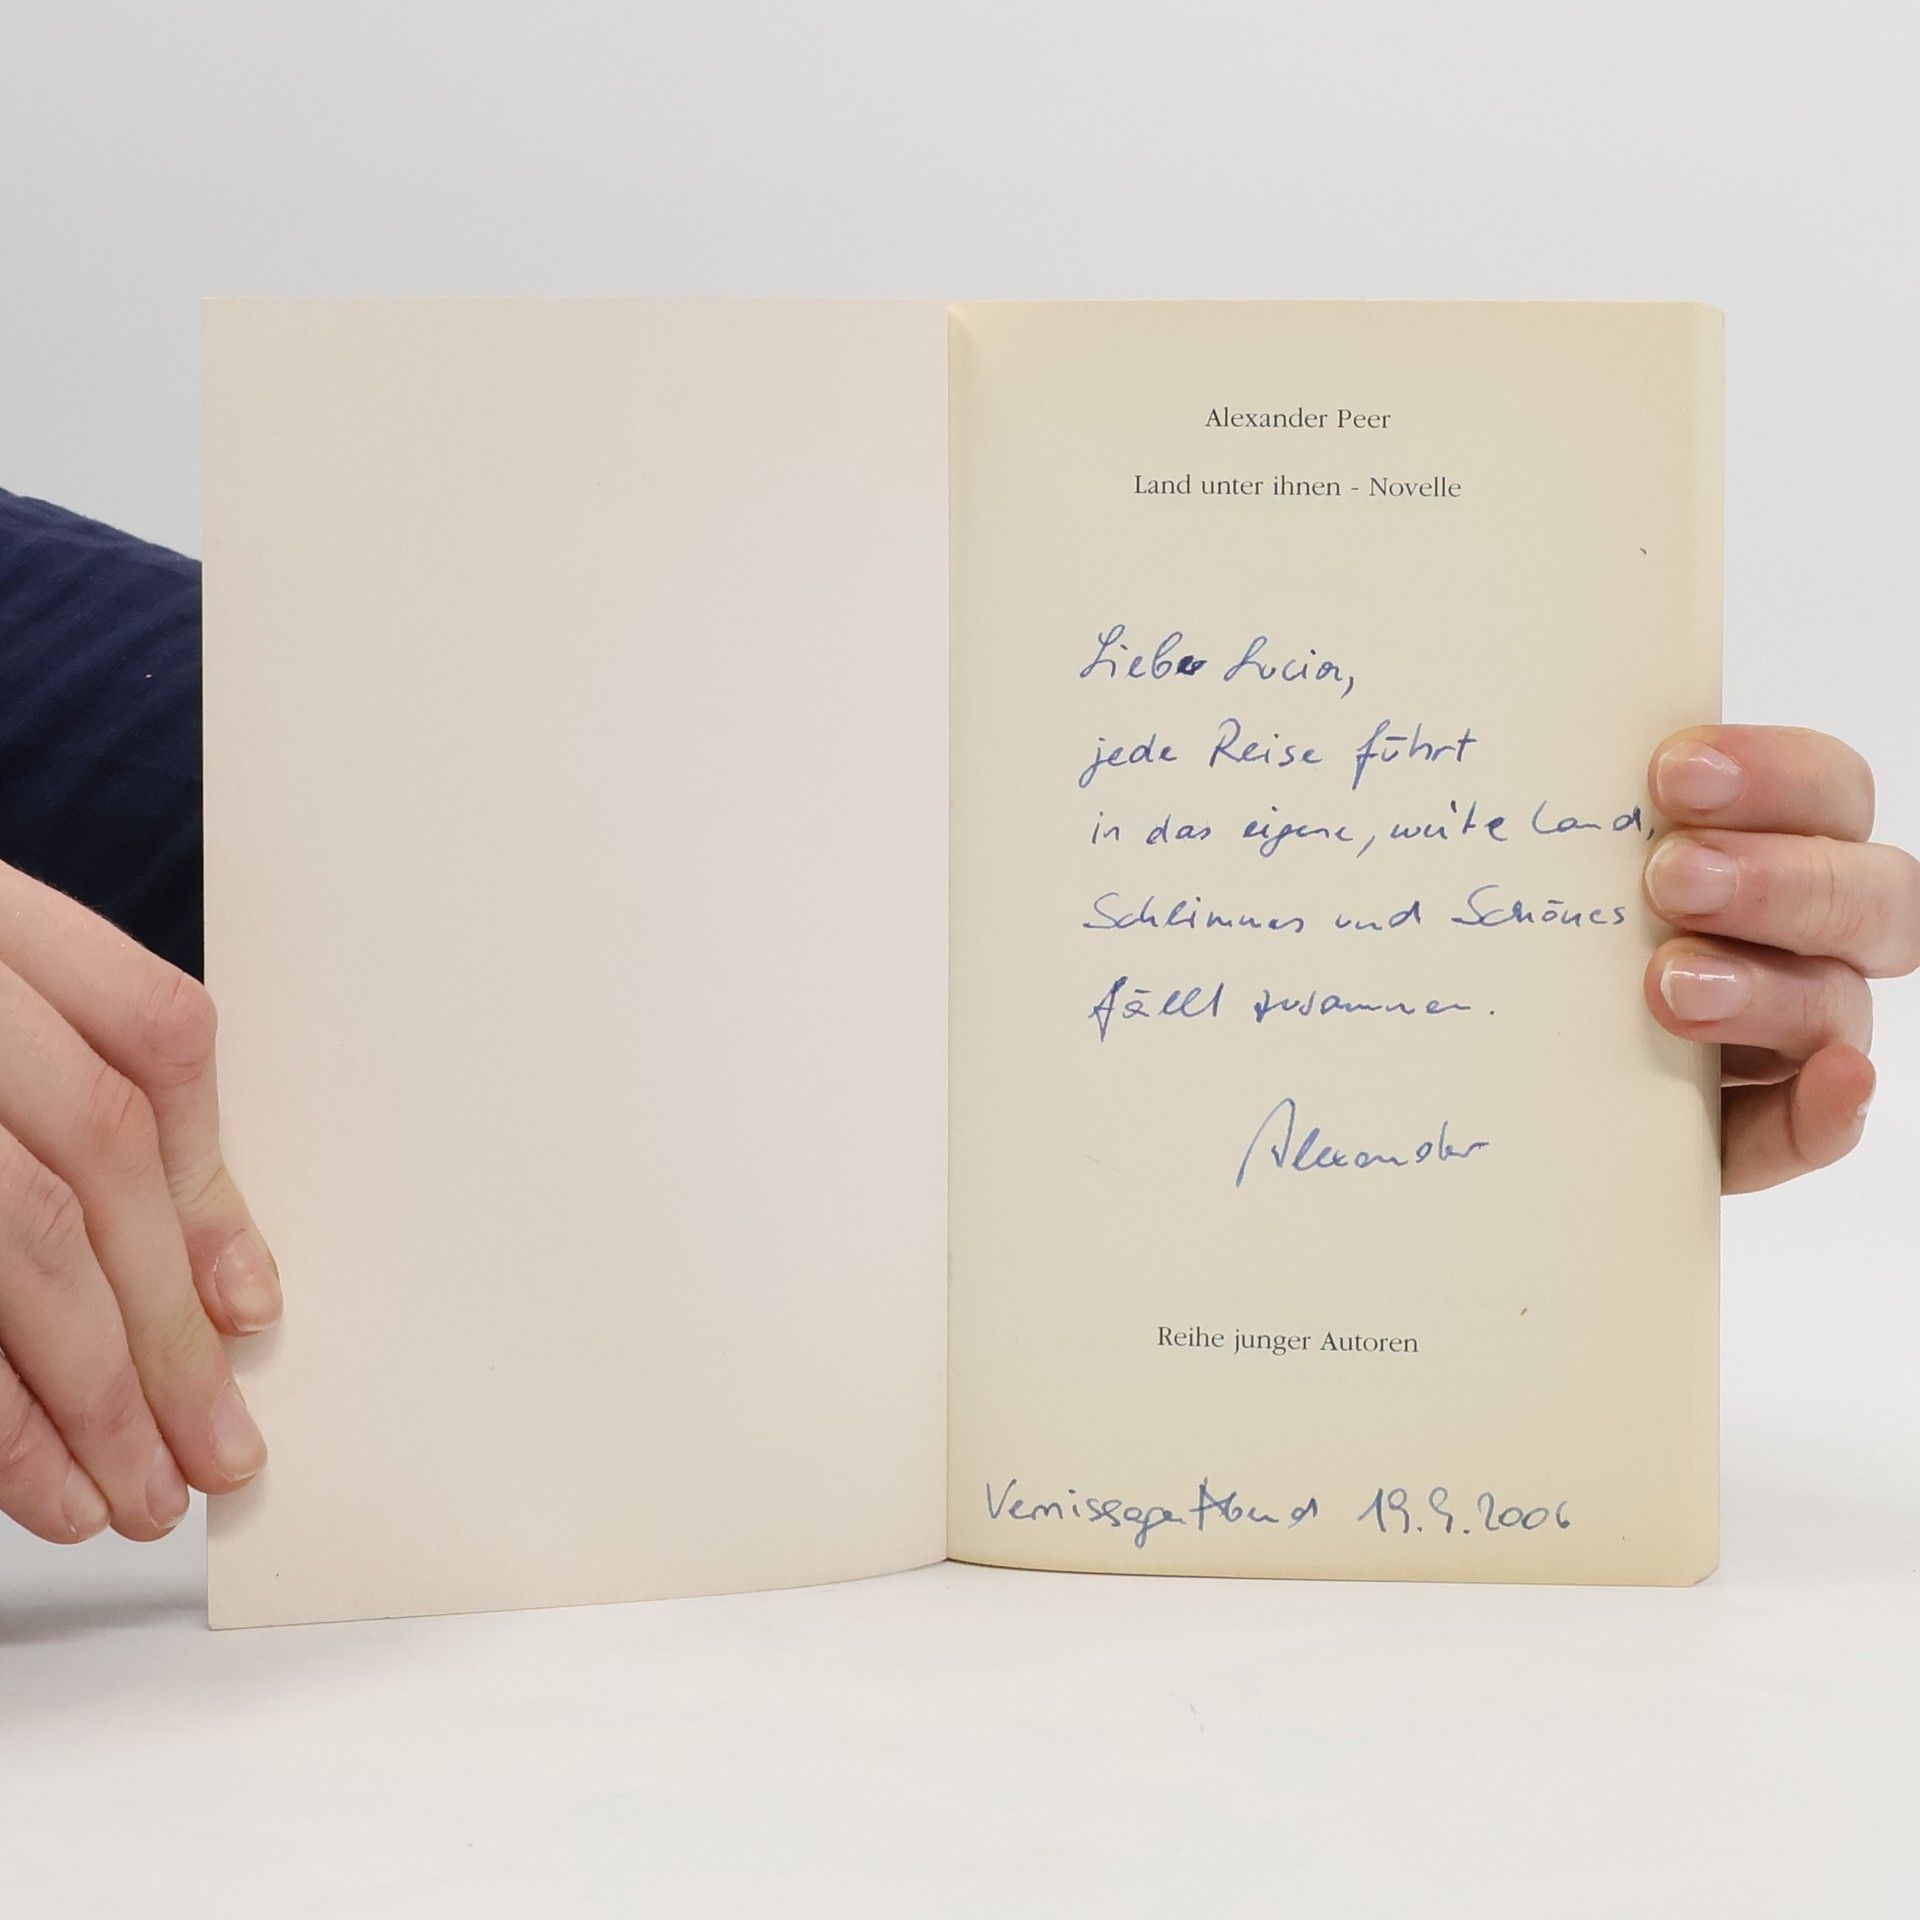 Alexander Peer
Land unter ihnen - Novelle
Liebe Lucia,
jede Reise führt
in das eigene, weite Land,
Schlimmes und Schönes
fällt zusammen.
Alexander
Reihe junger Autoren
Vernissagen Abend 19.9.2006